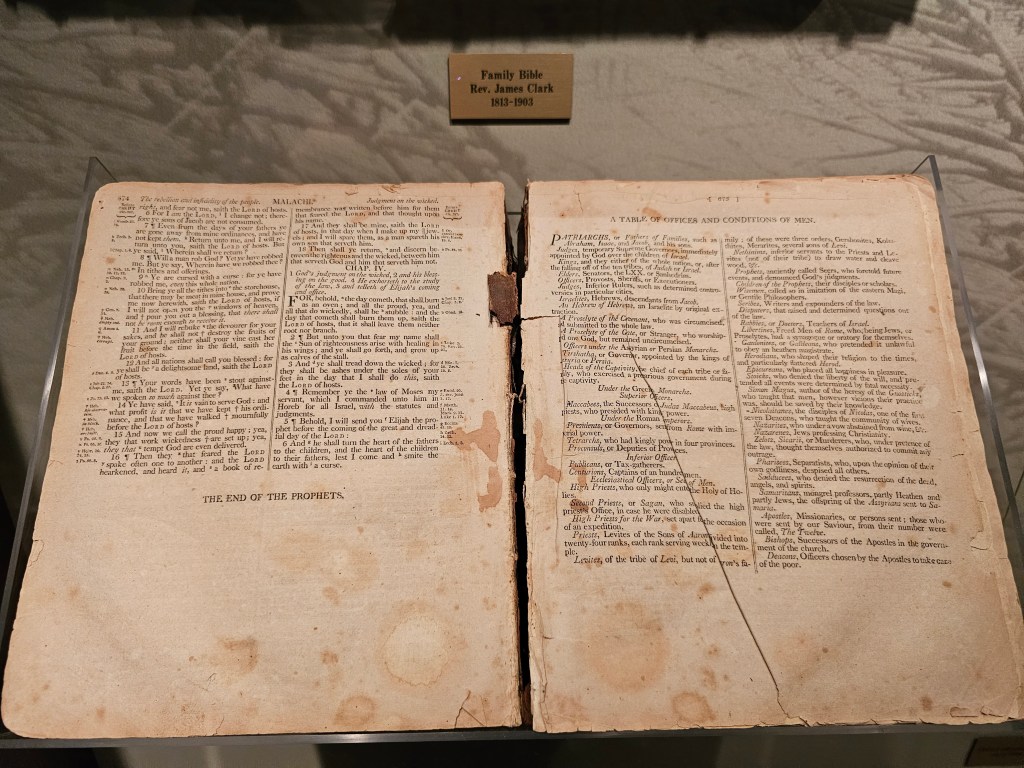 Family Bible
Rev. James Clark
1813-1903
874 The rebellion and infidelity of the people. MALACHI. Judgment on the wicked.
right, and fear not me, saith the LORD of hosts.
6 For I am the LORD, I change not; there-
fore ye sons of Jacob are not consumed.
7 ¶ Even from the days of your fathers ye
are gone away from mine ordinances, and have
not kept them. Return unto me, and I will re-
turn unto you, saith the LORD of hosts. But
ye said, Wherein shall we return?
8 ¶ Will a man rob God? Yet ye have robbed
me. But ye say, Wherein have we robbed thee?
In tithes and offerings.
9 Ye are cursed with a curse: for ye have
robbed me, even this whole nation.
10 Bring ye all the tithes into the storehouse,
that there may be meat in mine house, and prove
me now herewith, saith the LORD of hosts, if
I will not open you the windows of heaven,
and pour you out a blessing, that there shall
not be room enough to receive it.
11 And I will rebuke the devourer for your
sakes, and he shall not destroy the fruits of
your ground; neither shall your vine cast her
fruit before the time in the field, saith the
LORD of hosts.
12 And all nations shall call you blessed: for
ye shall be a delightsome land, saith the LORD
of hosts.
13 ¶ Your words have been stout against
me, saith the LORD. Yet ye say, What have
we spoken so much against thee?
14 Ye have said, It is vain to serve God: and
what profit is it that we have kept his ordi-
nance, and that we have walked mournfully
before the LORD of hosts?
15 And now we call the proud happy; yea,
they that work wickedness are set up; yea,
they that tempt God are even delivered.
16 ¶ Then they that feared the LORD
spake often one to another: and the LORD
hearkened, and heard it, and a book of re-
membrance was written before him for them
that feared the LORD, and that thought upon
his name.
17 And they shall be mine, saith the LORD
of hosts, in that day when I make up my jew-
els; and I will spare them, as a man spareth his
own son that serveth him.
18 Then shall ye return, and discern be-
tween the righteous and the wicked, between him
that serveth God and him that serveth him not.
CHAP. IV.
1 God's judgment on the wicked, 2 and his bless-
ing on the good. 4 He exhorteth to the study
of the law, 5 and telleth of Elijah's coming
and office.
FOR, behold, the day cometh, that shall burn
as an oven; and all the proud, yea, and
all that do wickedly, shall be stubble: and the
day that cometh shall burn them up, saith the
LORD of hosts, that it shall leave them neither
root nor branch.
2 ¶ But unto you that fear my name shall
the Sun of righteousness arise with healing in
his wings; and ye shall go forth, and grow up
as calves of the stall.
3 And ye shall tread down the wicked; for
they shall be ashes under the soles of your
feet in the day that I shall do this, saith
the LORD of hosts.
4 ¶ Remember ye the law of Moses my
servant, which I commanded unto him in
Horeb for all Israel, with the statutes and
judgments.
5 ¶ Behold, I will send you Elijah the pro-
phet before the coming of the great and dread-
ful day of the LORD:
6 And he shall turn the heart of the fathers
to the children, and the heart of the children
to their fathers, lest I come and smite the
earth with a curse.
THE END OF THE PROPHETS.
( 875 )
A TABLE OF OFFICES AND CONDITIONS OF MEN.
PATRIARCHS, or Fathers of Families, such as
Abraham, Isaac, and Jacob, and his sons.
Judges, temporary Supreme Governors, immediately
appointed by God over the children of Israel.
Kings, and they either of the whole nation, or, after
the falling off of the ten tribes, of Judah or Israel.
Elders, Senators, the LXX. or Sanhedrim.
Officers, Provosts, Sheriffs, or Executioners.
Judges, Inferior Rulers, such as determined contro-
versies in particular cities.
Israelites, Hebrews, descendants from Jacob.
An Hebrew of Hebrews, an Israelite by original ex-
traction.
A Proselyte of the Covenant, who was circumcised,
and submitted to the whole law.
A Proselyte of the Gate, or Stranger, who worship-
ped one God, but remained uncircumcised.
Officers under the Assyrian or Persian Monarchs.
Tirshatha, or Governor, appointed by the kings of
Assyria or Persia.
Heads of the Captivity, the chief of each tribe or fa-
mily, who exercised a precarious government during
the captivity.
Under the Grecian Monarchs.
Superior Officers.
Maccabees, the Successors of Judas Maccabeus, high
priests, who presided with kingly power.
Under the Roman Emperors.
Presidents, or Governors, sent from Rome with im-
perial power.
Tetrarchs, who had kingly power in four provinces.
Proconsuls, or Deputies of Provinces.
Inferior Officers.
Publicans, or Tax-gatherers.
Centurions, Captains of an hundred men.
Ecclesiastical Officers, or Sects of Men.
High Priests, who only might enter the Holy of Ho-
lies.
Second Priests, or Sagan, who supplied the high
priest's Office, in case he were disabled.
High Priests for the War, set apart for the occasion
of an expedition.
Priests, Levites of the Sons of Aaron, divided into
twenty-four ranks, each rank serving weekly in the tem-
ple.
Levites, of the tribe of Levi, but not of Aaron's fa-
mily: of these were three orders, Gershonites, Koha-
thites, Merarites, several sons of Levi.
Nethinims, inferior servants to the Priests and Le-
vites (not of their tribe) to draw water and cleave
wood, &c.
Prophets, anciently called Seers, who foretold future
events, and denounced God's judgments.
Children of the Prophets, their disciples or scholars.
Wisemen, called so in imitation of the eastern Magi,
or Gentile Philosophers.
Scribes, Writers and expounders of the law.
Disputers, that raised and determined questions out
of the law.
Rabbies, or Doctors, Teachers of Israel.
Libertines, Freed Men of Rome, who, being Jews, or
Proselytes, had a synagogue or oratory for themselves.
Gaulonites, or Galileans, who pretended it unlawful
to obey an heathen magistrate.
Herodians, who shaped their religion to the times,
and particularly flattered Herod.
Epicureans, who placed all happiness in pleasure.
Stoicks, who denied the liberty of the will, and pre-
tended all events were determined by fatal necessity.
Simon Magus, author of the heresy of the Gnosticks,
who taught that men, however vicious their practice
was, should be saved by their knowledge.
Nicolaitanes, the disciples of Nicolas, one of the first
seven Deacons, who taught the community of wives.
Nazarites, who under a vow abstained from wine, &c.
Nazarenes, Jews professing Christianity.
Zelots, Sicarii, or Murderers, who, under pretence of
the law, thought themselves authorized to commit any
outrage.
Pharisees, Separatists, who, upon the opinion of their
own godliness, despised all others.
Sadducees, who denied the resurrection of the dead,
angels, and spirits.
Samaritans, mongrel professors, partly Heathen and
partly Jews, the offspring of the Assyrians sent to Sa-
maria.
Apostles, Missionaries, or persons sent; those who
were sent by our Saviour, from their number were
called, The Twelve.
Bishops, Successors of the Apostles in the govern-
ment of the church.
Deacons, Officers chosen by the Apostles to take care
of the poor.